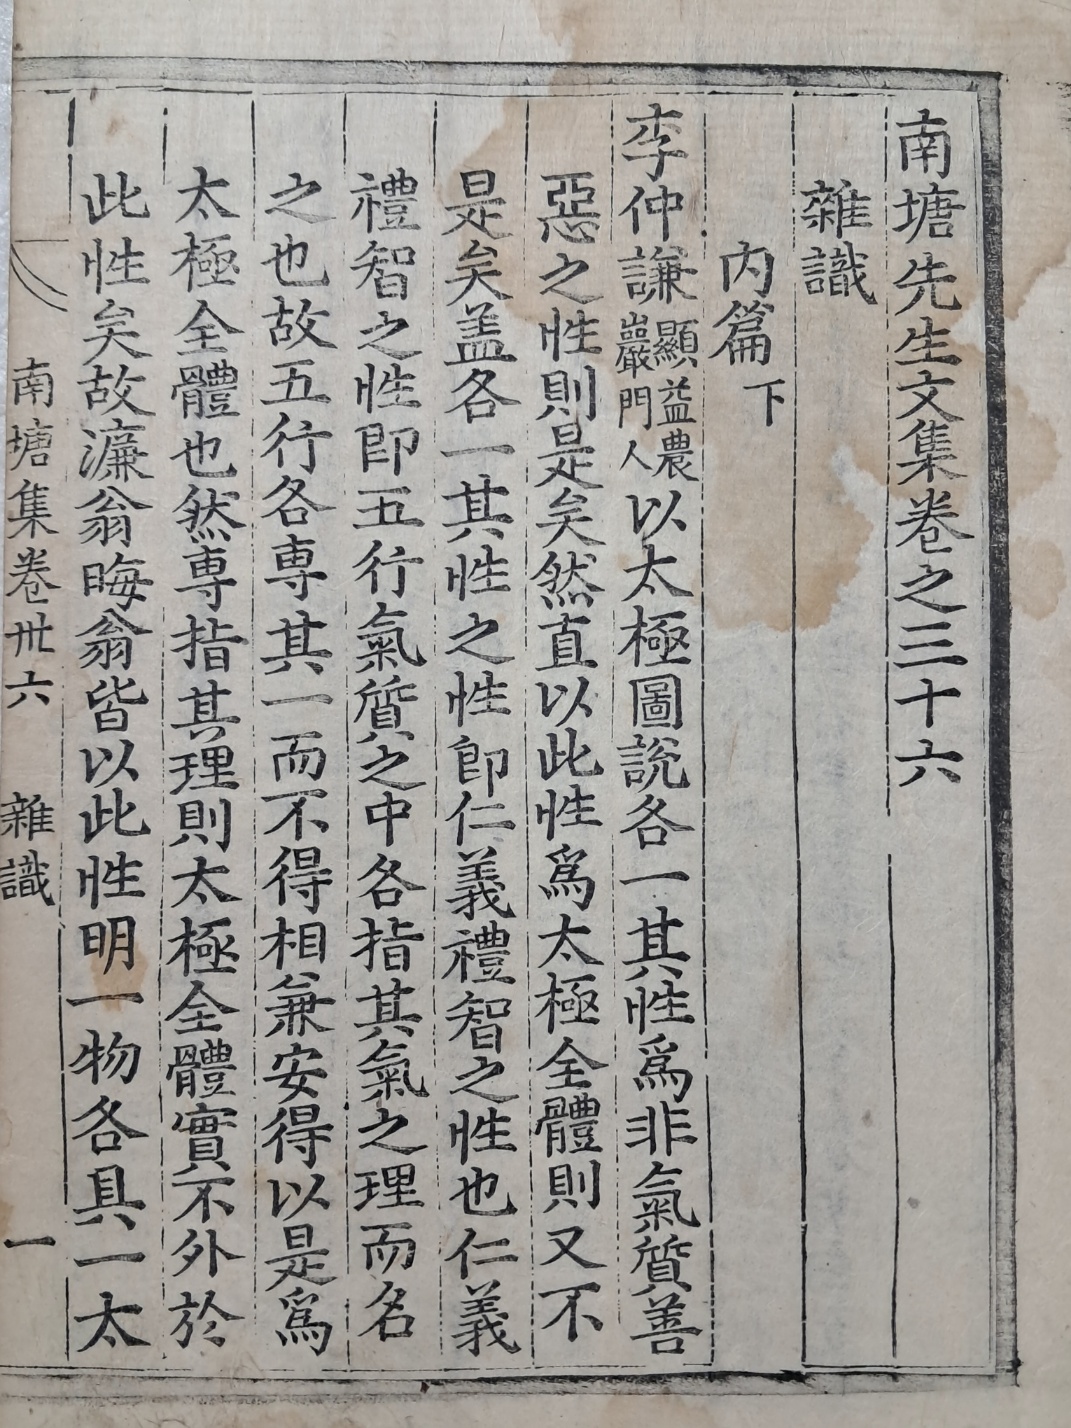 南塘先生文集卷之三十六
雜識
內篇下
李仲謙顯益農巖門人以太極圖說各一其性爲非氣質善
惡之性則是矣然直以此性爲太極全體則又不
是矣盖各一其性之性卽仁義禮智之性也仁義
禮智之性卽五行氣質之中各指其氣之理而名
之也故五行各專其一而不得相兼安得以是爲
太極全體也然專指其理則太極全體實不外於
此性矣故濂翁晦翁皆以此性明一物各具一太
南塘集卷卅六 雜識 一